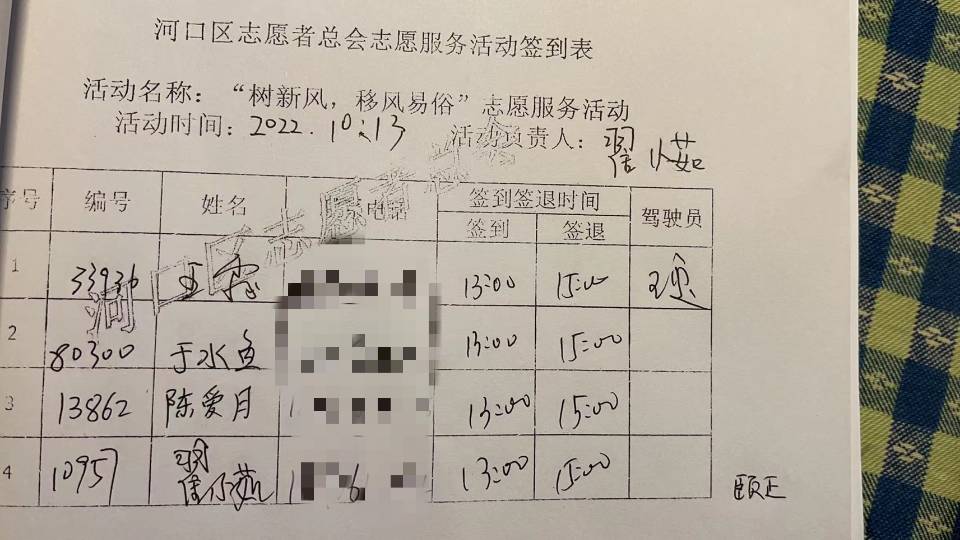 河口区志愿者总会志愿服务活动签到表
活动名称：“树新风，移风易俗”志愿服务活动
活动时间：2022.10.13 活动负责人：翟小茹
序号 编号 姓名 电话 签到签退时间 驾驶员
签到 签退
河口区志愿者总会
1 33936 王 13:00 15:00 王
2 80300 于水鱼 13:00 15:00
3 13862 陈爱月 1 13:00 15:00
4 10957 翟小茹 1 6 13:00 15:00
颐正